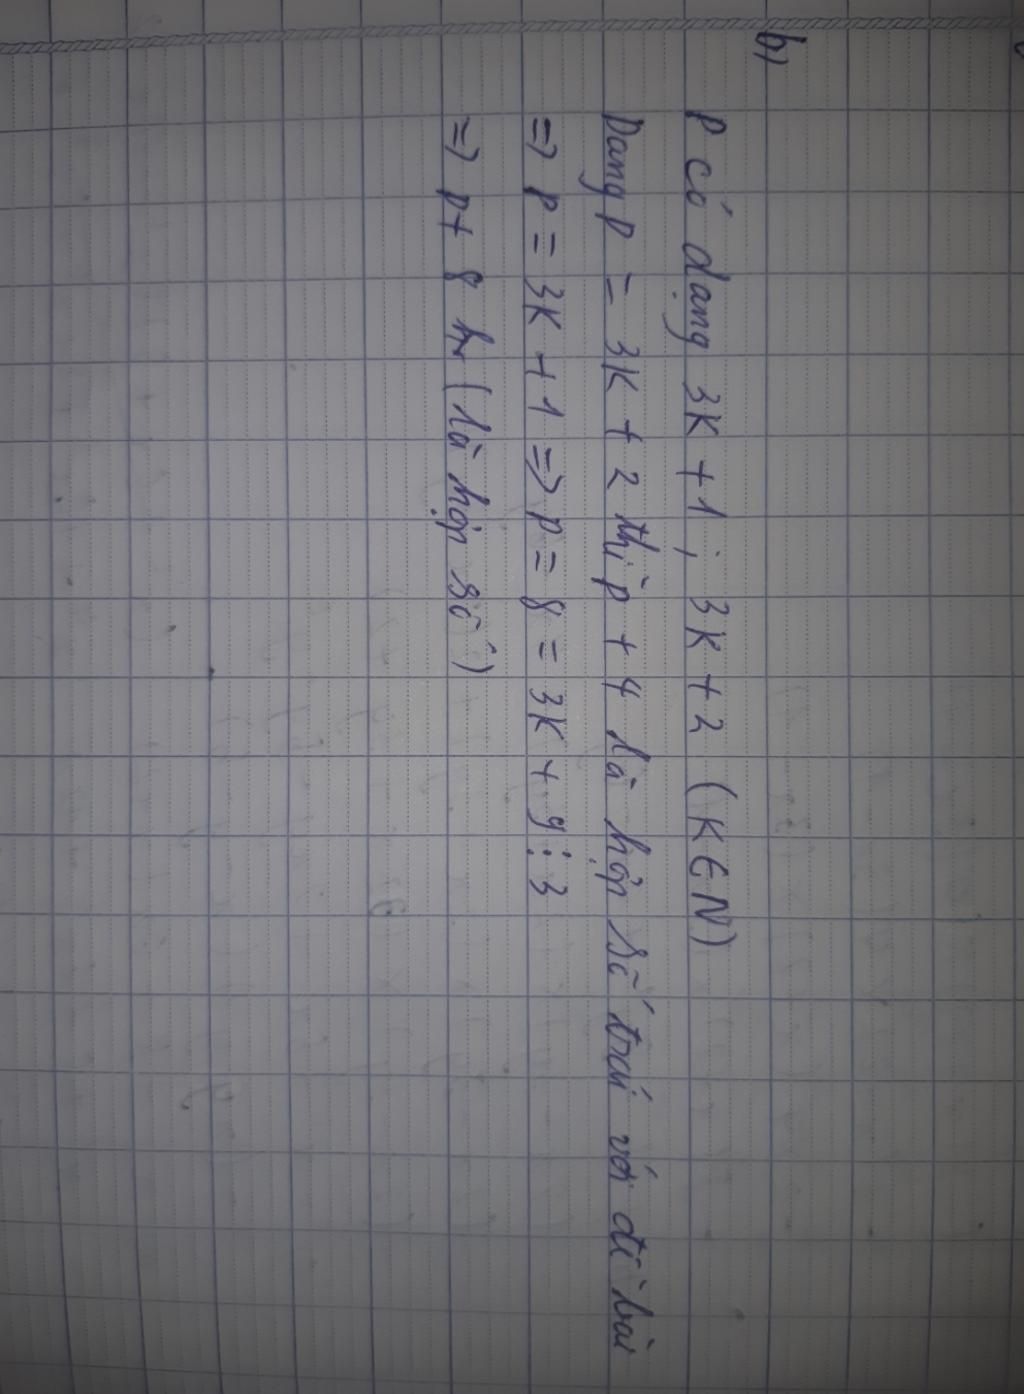 b)
P có dạng 3K + 1 ; 3K + 2 (K ∈ N)
Dạng p = 3K + 2 thì p + 4 là hợp số trái với đề bài
=> p = 3K + 1 => p = 8 = 3K + 9 ⋮ 3
=> p + 8 (là hợp số)